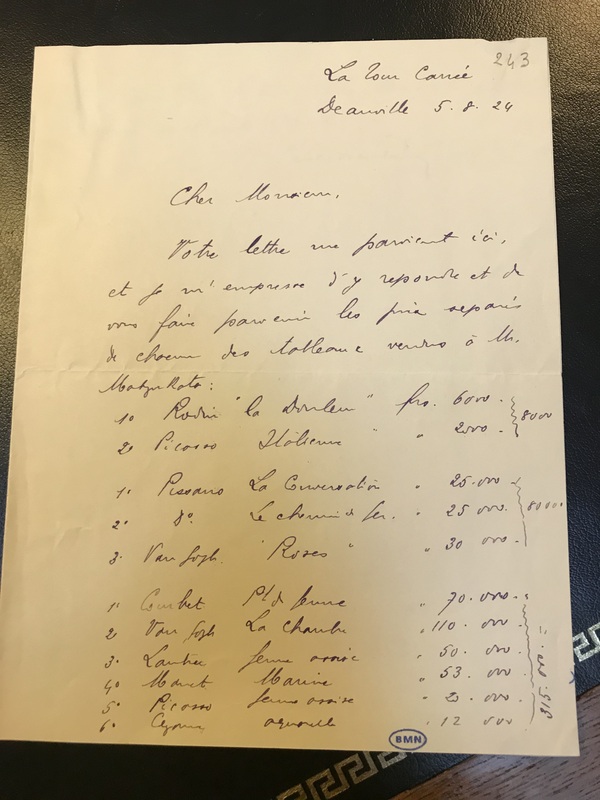 243
La Tour Carrée
Deauville 5.8.24
Cher Monsieur,
Votre lettre me parvient ici,
et je m'empresse d'y repondre et de
vous faire parvenir les prix separés
de chacun des tableaux vendus à Mr.
1º Rodin "la Douleur" frs. 6000.
2º Picasso Italienne " " 2000.
8000
1º Pissarro La Conversation " 25.000.
2º dº Le chemin de fer. " 25 000.
3º Van Gogh "Roses" " 30 000.
80000
1º Courbet Pt. de femme " 70.000.
2º Van Gogh La chambre " 110.000
3º Lautrec femme assise " 50.000
4º Manet Marine " 53.000
5º Picasso femme assise " 000
6º Cezanne aquarelle " 12 000
BMN